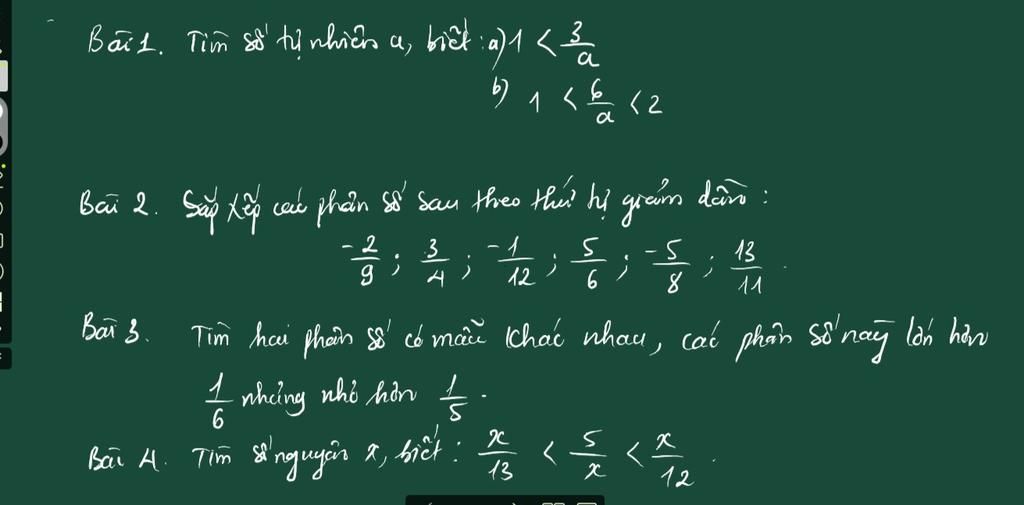 Bài 1. Tìm số tự nhiên a, biết: a) 1 < 3/a
b) 1 < 6/a < 2
Bài 2. Sắp xếp các phân số sau theo thứ tự giảm dần:
-2/9 ; 3/4 ; -1/12 ; 5/6 ; -5/8 ; 13/11.
Bài 3. Tìm hai phân số có mẫu khác nhau, các phân số này lớn hơn
1/6 nhưng nhỏ hơn 1/5.
Bài 4. Tìm số nguyên x, biết: x/13 < 5/x < x/12.